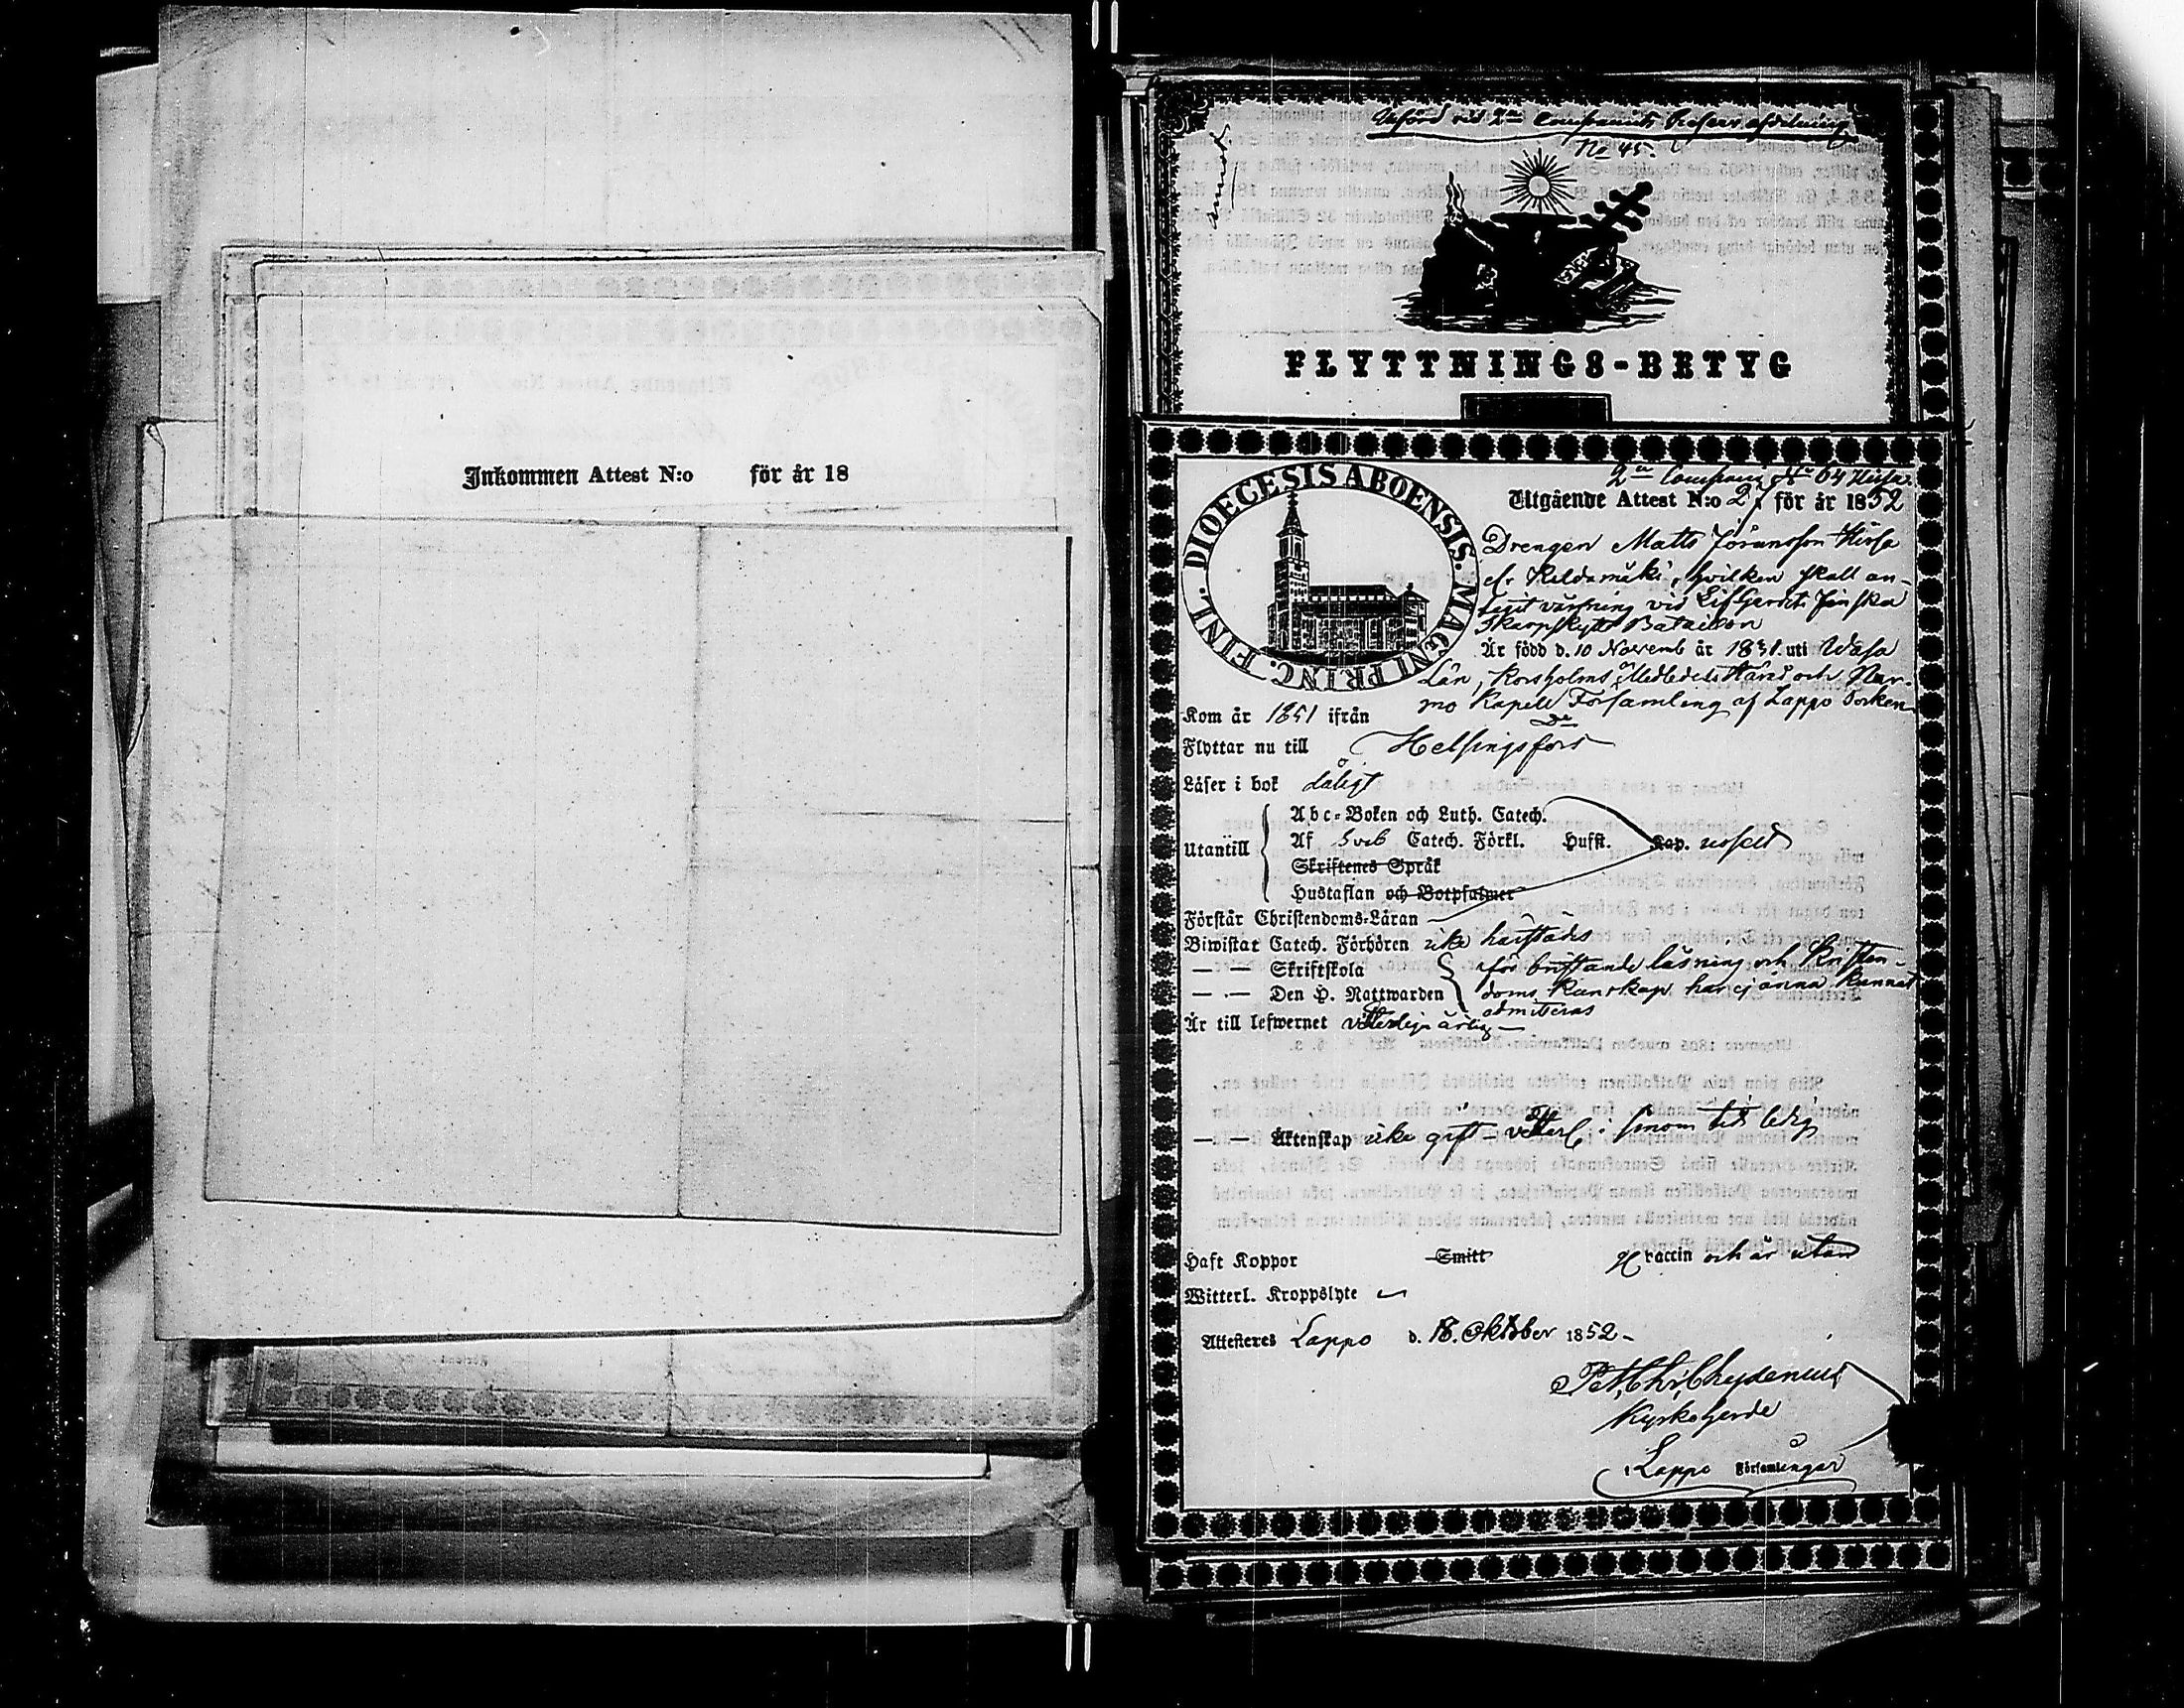 Inkommen Attest N:o för år 18
Införd vid 2:a Compagniets afdelning
No 45.
FLYTTNINGS-BETYG
DIOECESIS ABOENSIS. MAGNI PRINC. FINL.
2:a Compani No 64
Utgående Attest N:o 27 för år 1852
Drengen Matts Jöransson Hirsa
el. Keldamäki, hvilken skall an-
tagit värfning vid Lif Gardets Finska
Skarpskytte Bataillon
Är född d. 10 Novemb år 1831. uti Wasa
Län, Korsholms Medledels Härad och Nur-
mo Kapell Församling af Lappo Socken
Kom år 1851 ifrån D:o
Flyttar nu till Helsingfors
Läser i bok dåligt
Utantill
Abc-Boken och Luth. Catech.
Af Sveb Catech. Förkl. Hufst. Kap. uselt
Skriftenes Språk
Hustaflan och Botpsalmer
Förstår Christendoms-Läran
Biwistat Catech. Förhören icke härstädes
— — Skriftskola för bristande läsning och Kristen-
— — Den H. Nattwarden doms kunskap har ej änna kunnat
admitteras
Är till lefwernet vetterligen ärlig —
— — Äktenskap icke gift – vetterl. i sinom tid ledig
Haft Koppor Smitt vaccin och är utan
Witterl. Kroppslyte
Attesteres Lappo d. 18. Oktober 1852 –
Pet. Chr. Chydenius
Kyrkoherde
i Lappo Församlingar